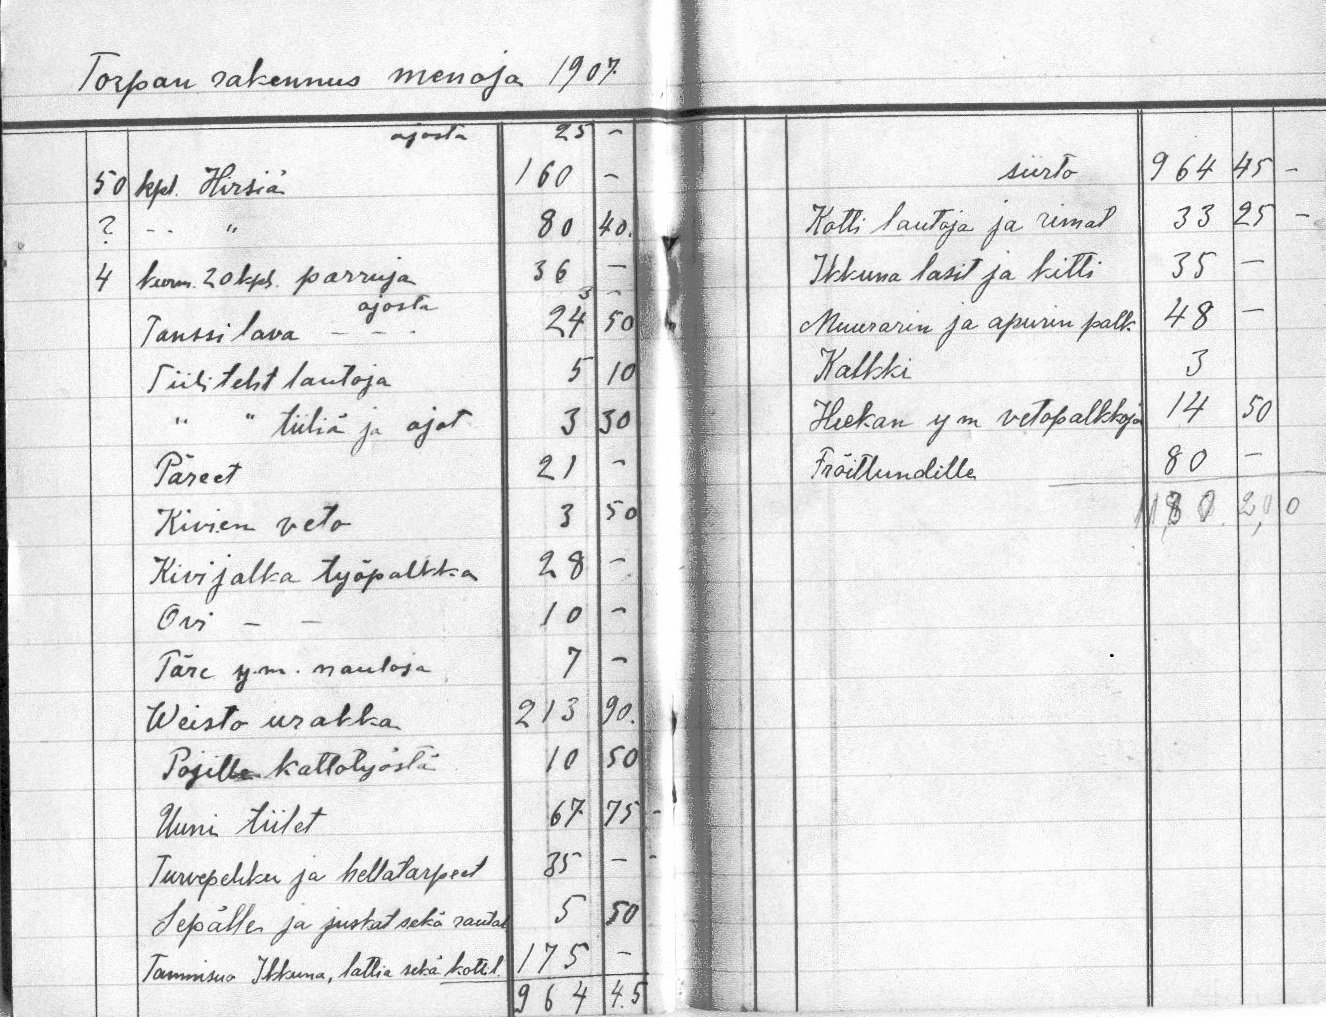 Torpan rakennus menoja 1907.
ajosta 25 –
50 kpl. Hirsiä 160 –
? - - " 80 40.
4 kuorm. 20 kpl. parruja 36 –
ajosta 3 –
Tanssi lava – – - 24 50
Tiili teht lautoja 5 10
" " tiiliä ja ajot 3 30
Päreet 21 –
Kivien veto 3 50
Kivijalka työpalkka 28 –
Ovi – – 10 –
Päre y.m. nauloja 7 –
Weisto urakka 213 90.
Pojille kattotyöstä 10 50
Uuni tiilet 67 75 -
Turvepehku ja hellatarpeet 35 – -
Sepälle ja juskat sekä raudat 5 50
Tammisuo Ikkuna, lattia sekä kattil. 175 –
964 45
siirto 964 45 –
Katti lautoja ja rimat 33 25 –
Ikkuna lasit ja kitti 35 –
Muurarin ja apurin palk. 48 –
Kalkki 3
Hiekan ym vetopalkkoja 14 50
Fröitlundille 80 –